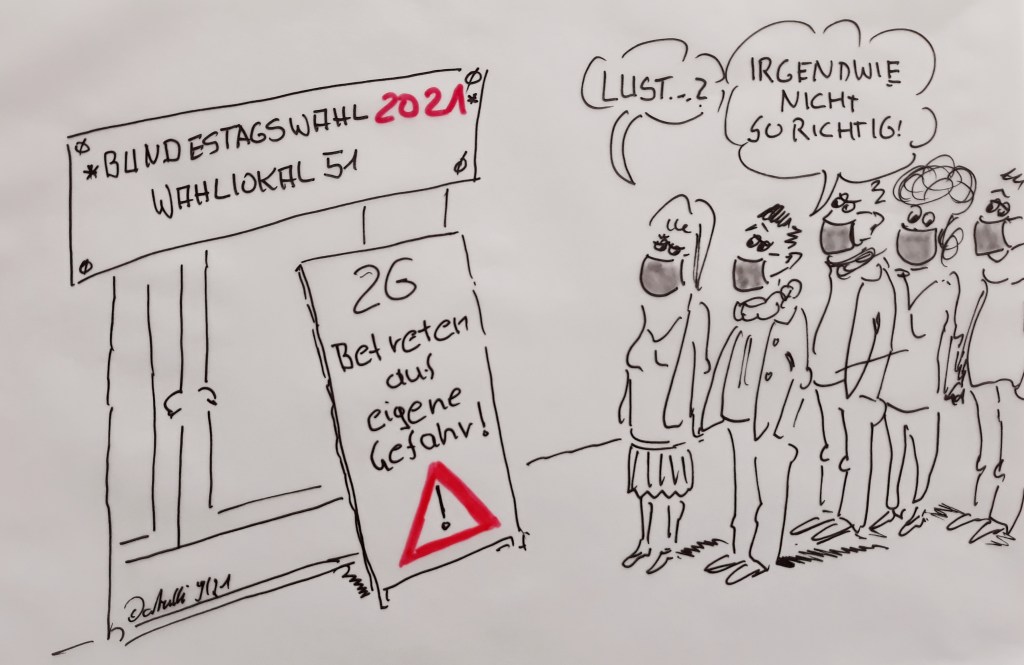 *BUNDESTAGSWAHL 2021*
WAHLLOKAL 51
LUST...?
IRGENDWIE
NICHT
SO RICHTIG!
2G
Betreten
aus
eigene
Gefahr!
!
9/21